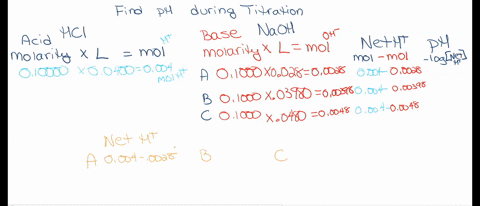 Find pH during Titration
Acid HCl
molarity x L = mol H+
0.10000 x 0.0400=0.004
mol H+
Base NaOH
molarity x L = mol OH-
A 0.1000x0.028=0.0028
B 0.1000x.03980=0.00398
C 0.1000x.0480=0.0048
Net H+
mol - mol
0.004-0.0028
0.004-0.00398
0.004-0.0048
pH
Net H+
A 0.004-.0028
B
C